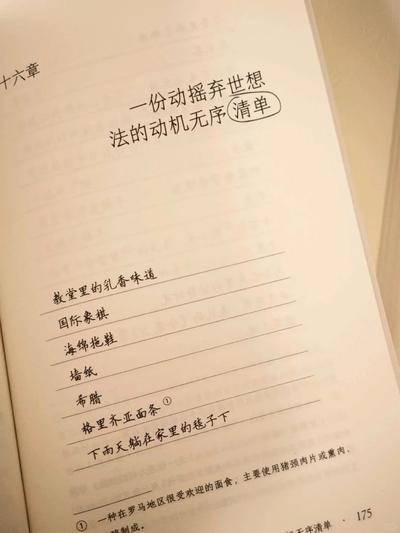 十六章
一份动摇弃世想
法的动机无序清单
教堂里的乳香味道
国际象棋
海绵拖鞋
墙纸
希腊
格里齐亚面条①
下雨天躺在家里的毯子下
① 一种在罗马地区很受欢迎的面食，主要使用猪颈肉片或熏肉、
制成。
无序清单 · 175